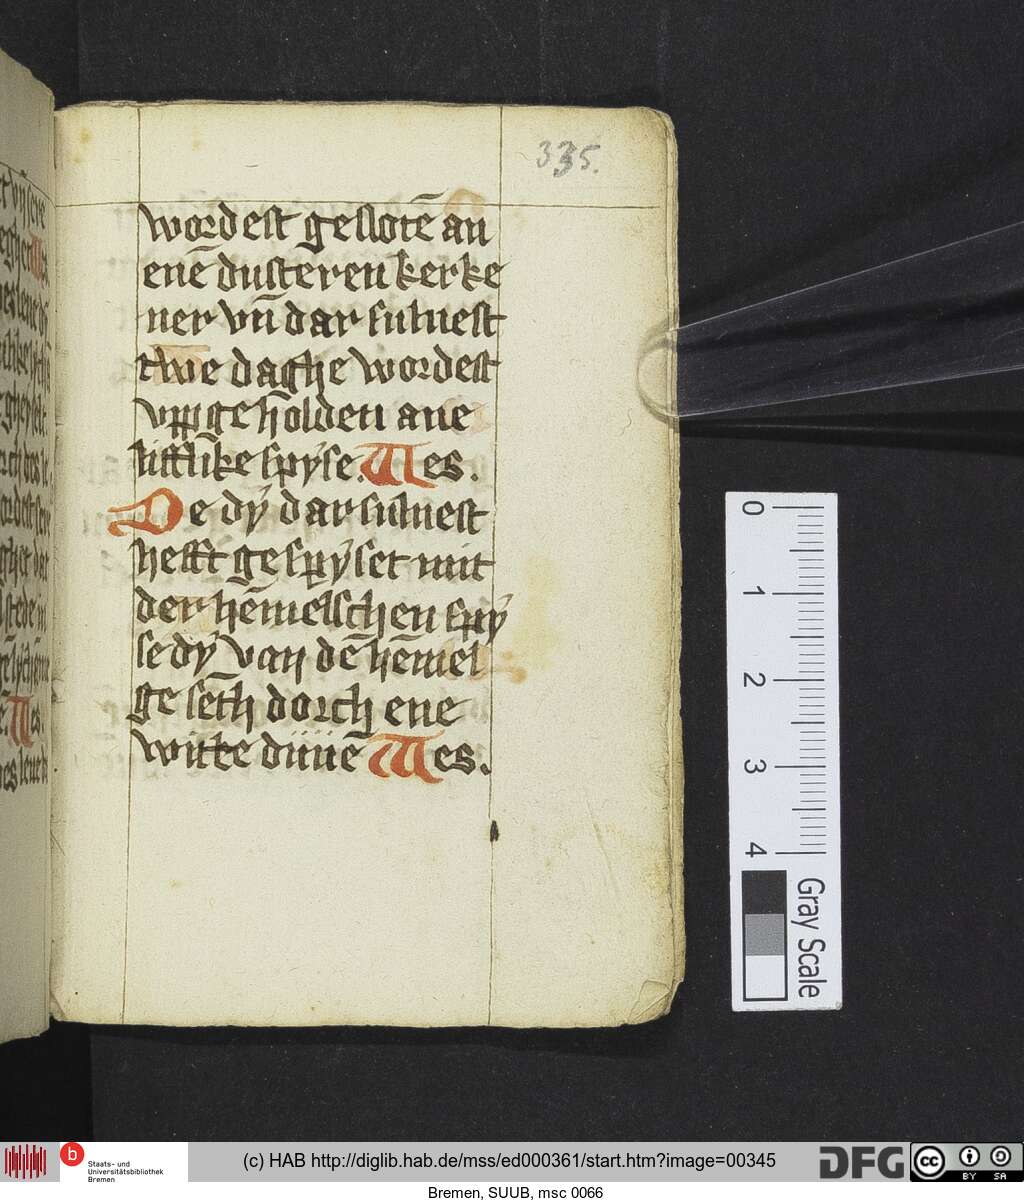 335.
wordest geslotē an
enē dusteren kerke
ner vn̄ dar suluest
twe daghe wordest
vppgeholden ane
liffl̄ike spÿse. Mes.
De dÿ dar suluest
hefft gespÿset mit
der hēmelschen spÿ
se dÿ van dē hēmel
ge sēth dorch ene
witte duuē Mes.
0
1
2
3
4
Gray Scale
b
Staats- und
Universitätsbibliothek
Bremen
(c) HAB http://diglib.hab.de/mss/ed000361/start.htm?image=00345
DFG
cc BY SA
Bremen, SUUB, msc 0066